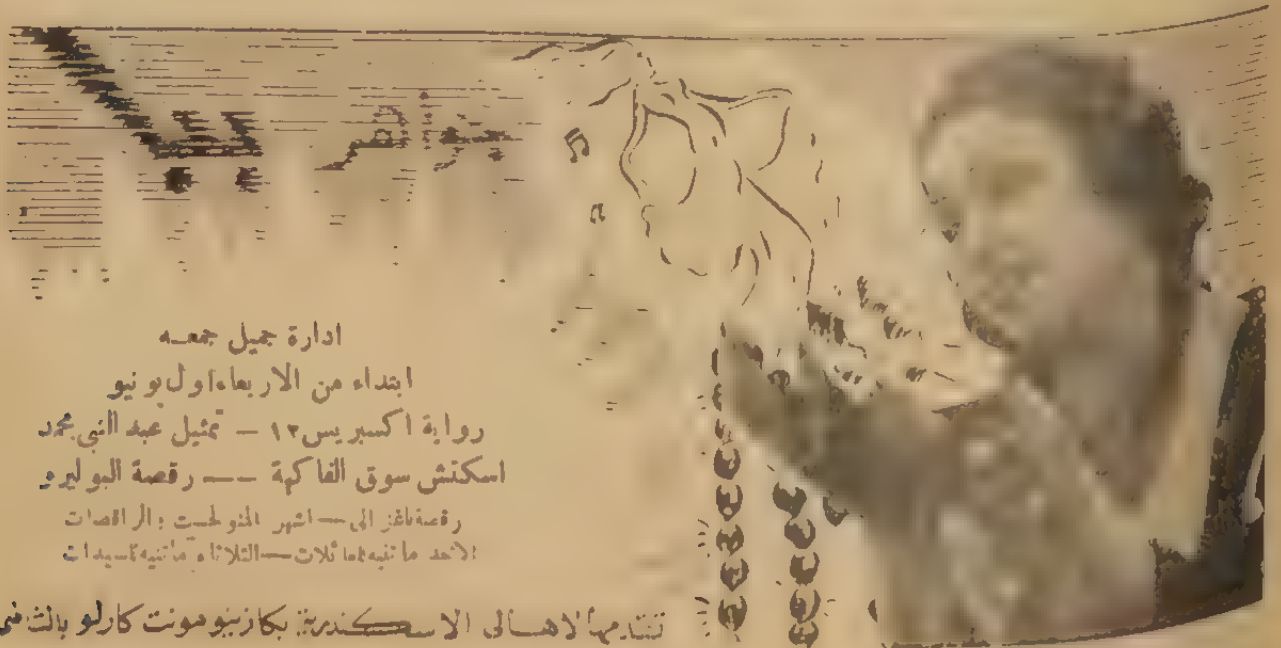 ببا
ادارة جميل جمعه
ابتداء من الاربعاء اول يونيو
رواية اكسبريس ١٢ — تمثيل عبد النبي محمد
اسكتش سوق الفاكهة — رقصة البوليرو
اشهر المنولجست والراقصات
الاحد ماتنيه للعائلات — الثلاثاء ماتنيه للسيدات
تقدمها لاهالى الاسكندرية بكازينو مونت كارلو بالشاطبى